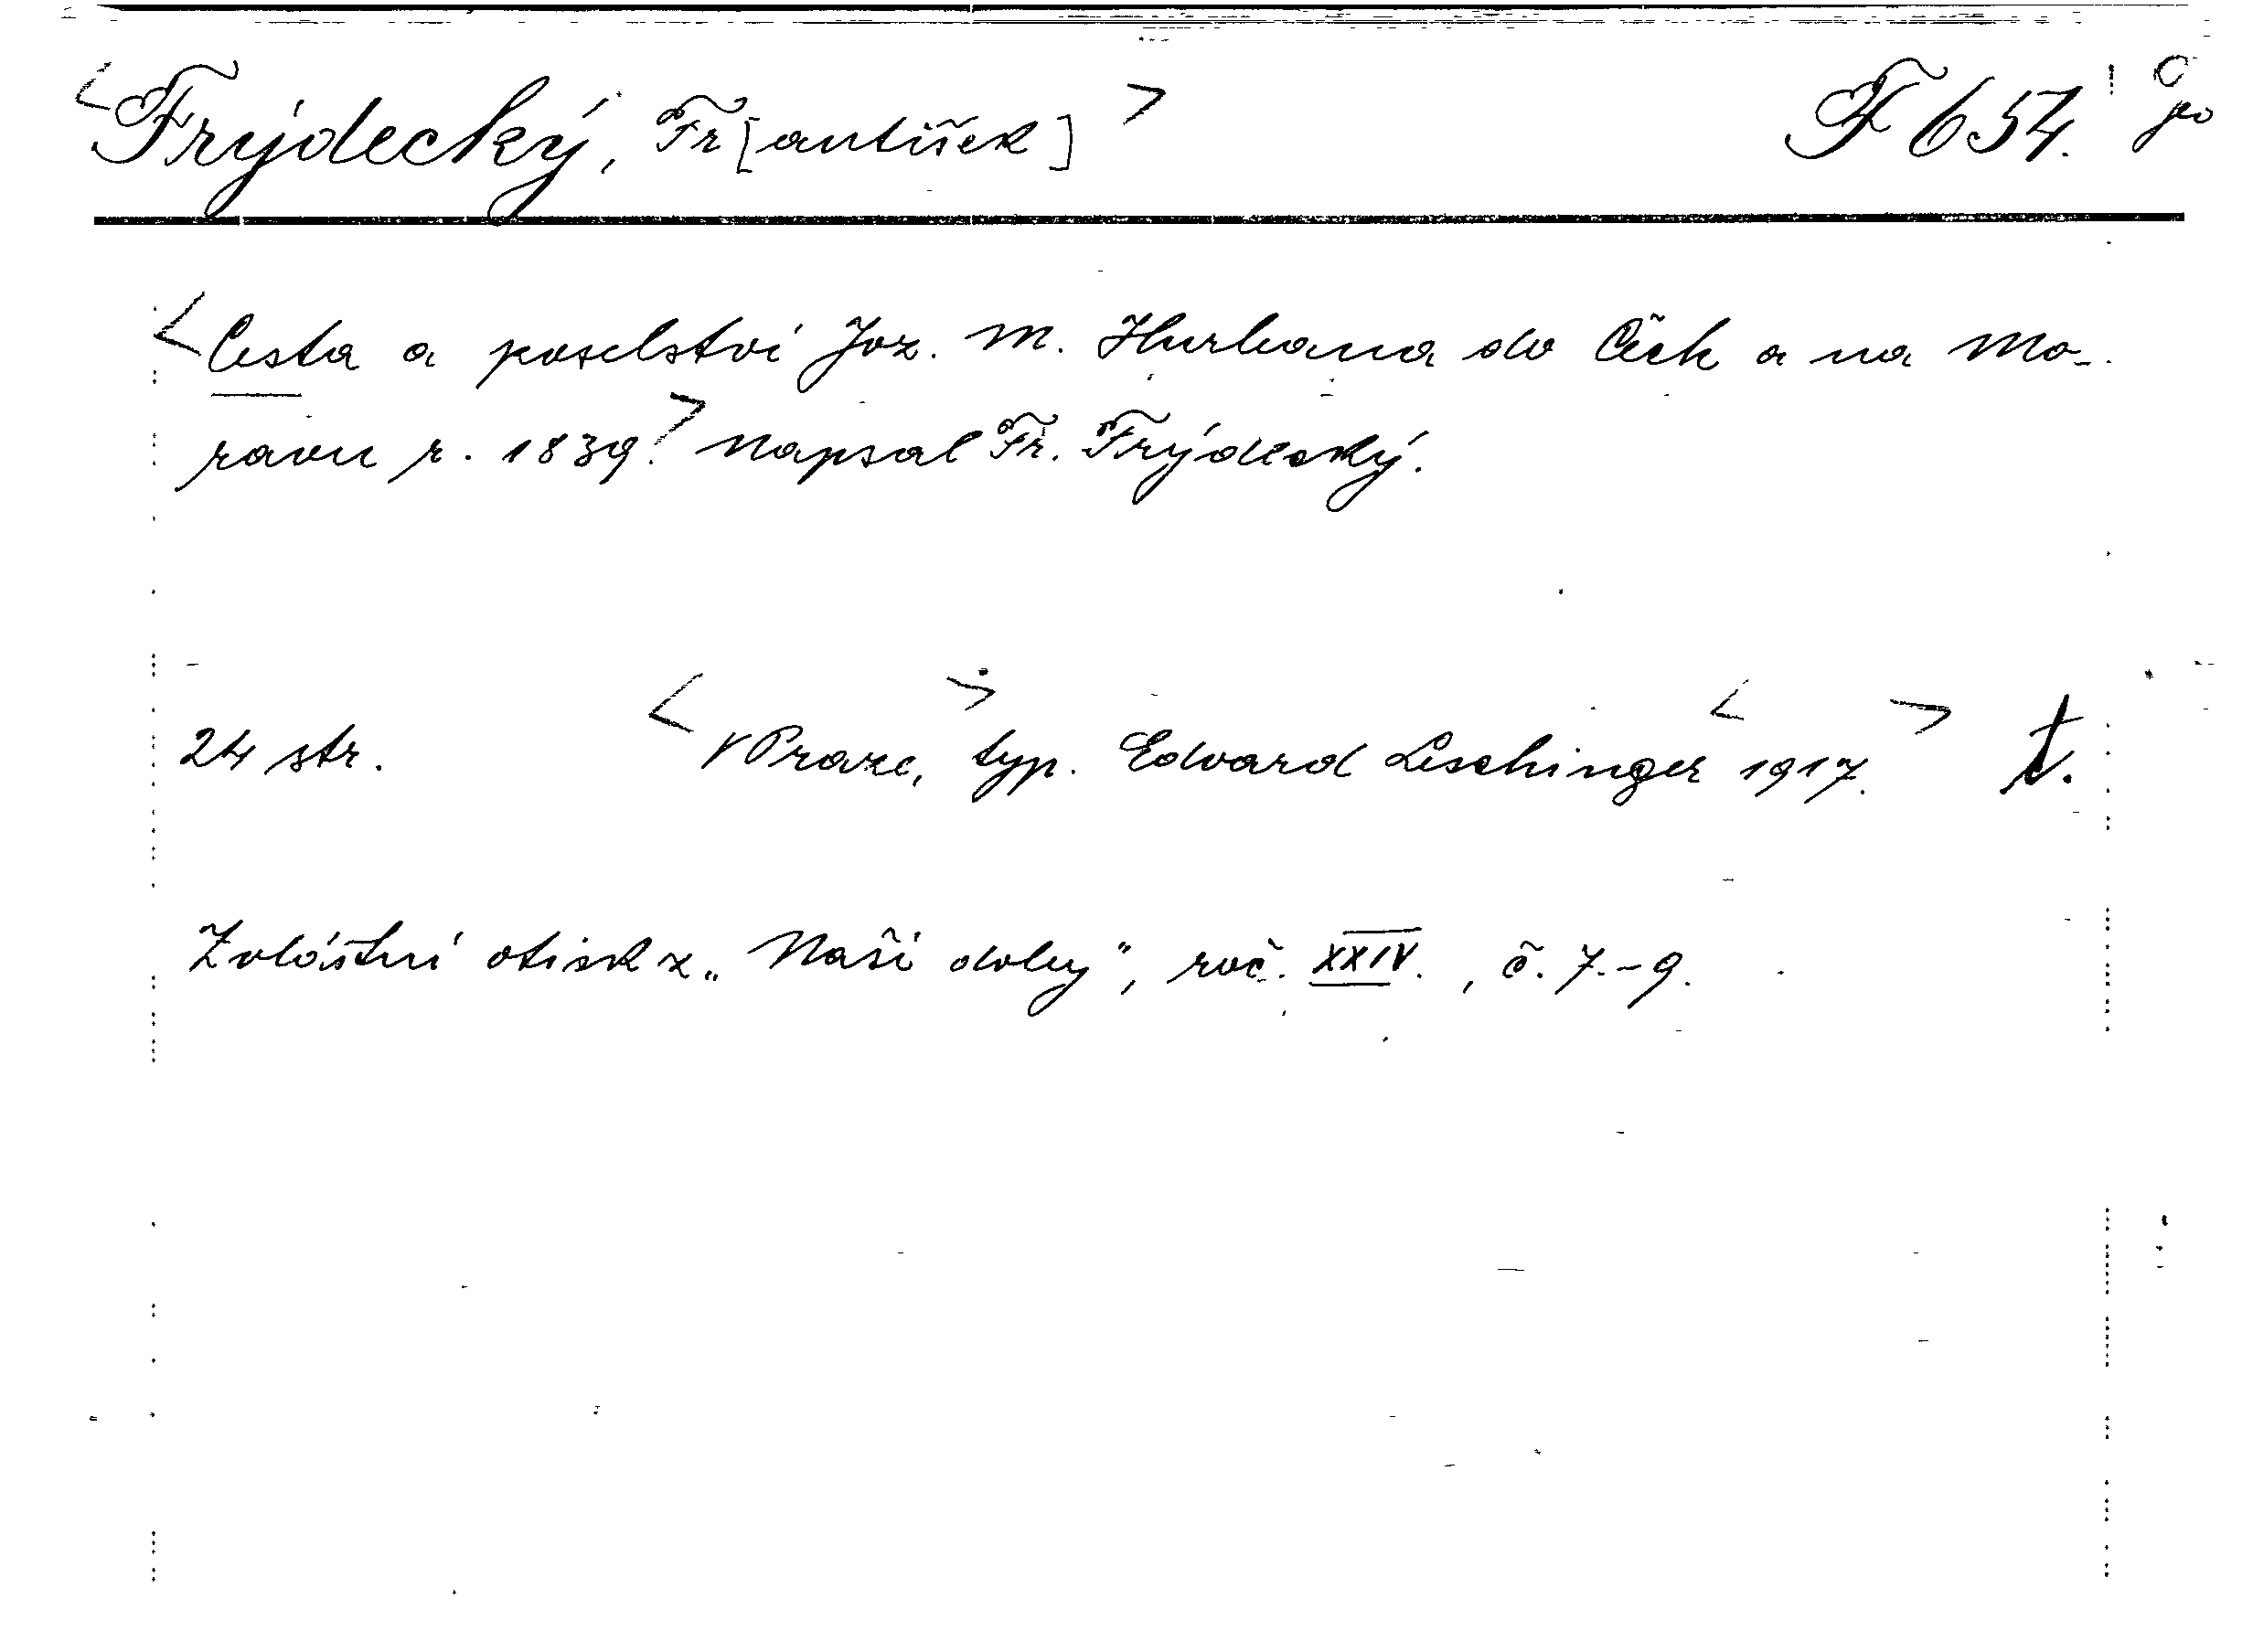 <Frýdecký, Fr[antišek]> F 654.
<Cesta a poselství Joz. M. Hurbana do Čech a na Mo-
ravu r. 1839.> Napsal Fr. Frýdecký.
24 str. <V Praze,> typ. Edvard Leschinger <1917.> t.
Zvláštní otisk z „Naší doby", roč. XXIV., č. 7.-9.